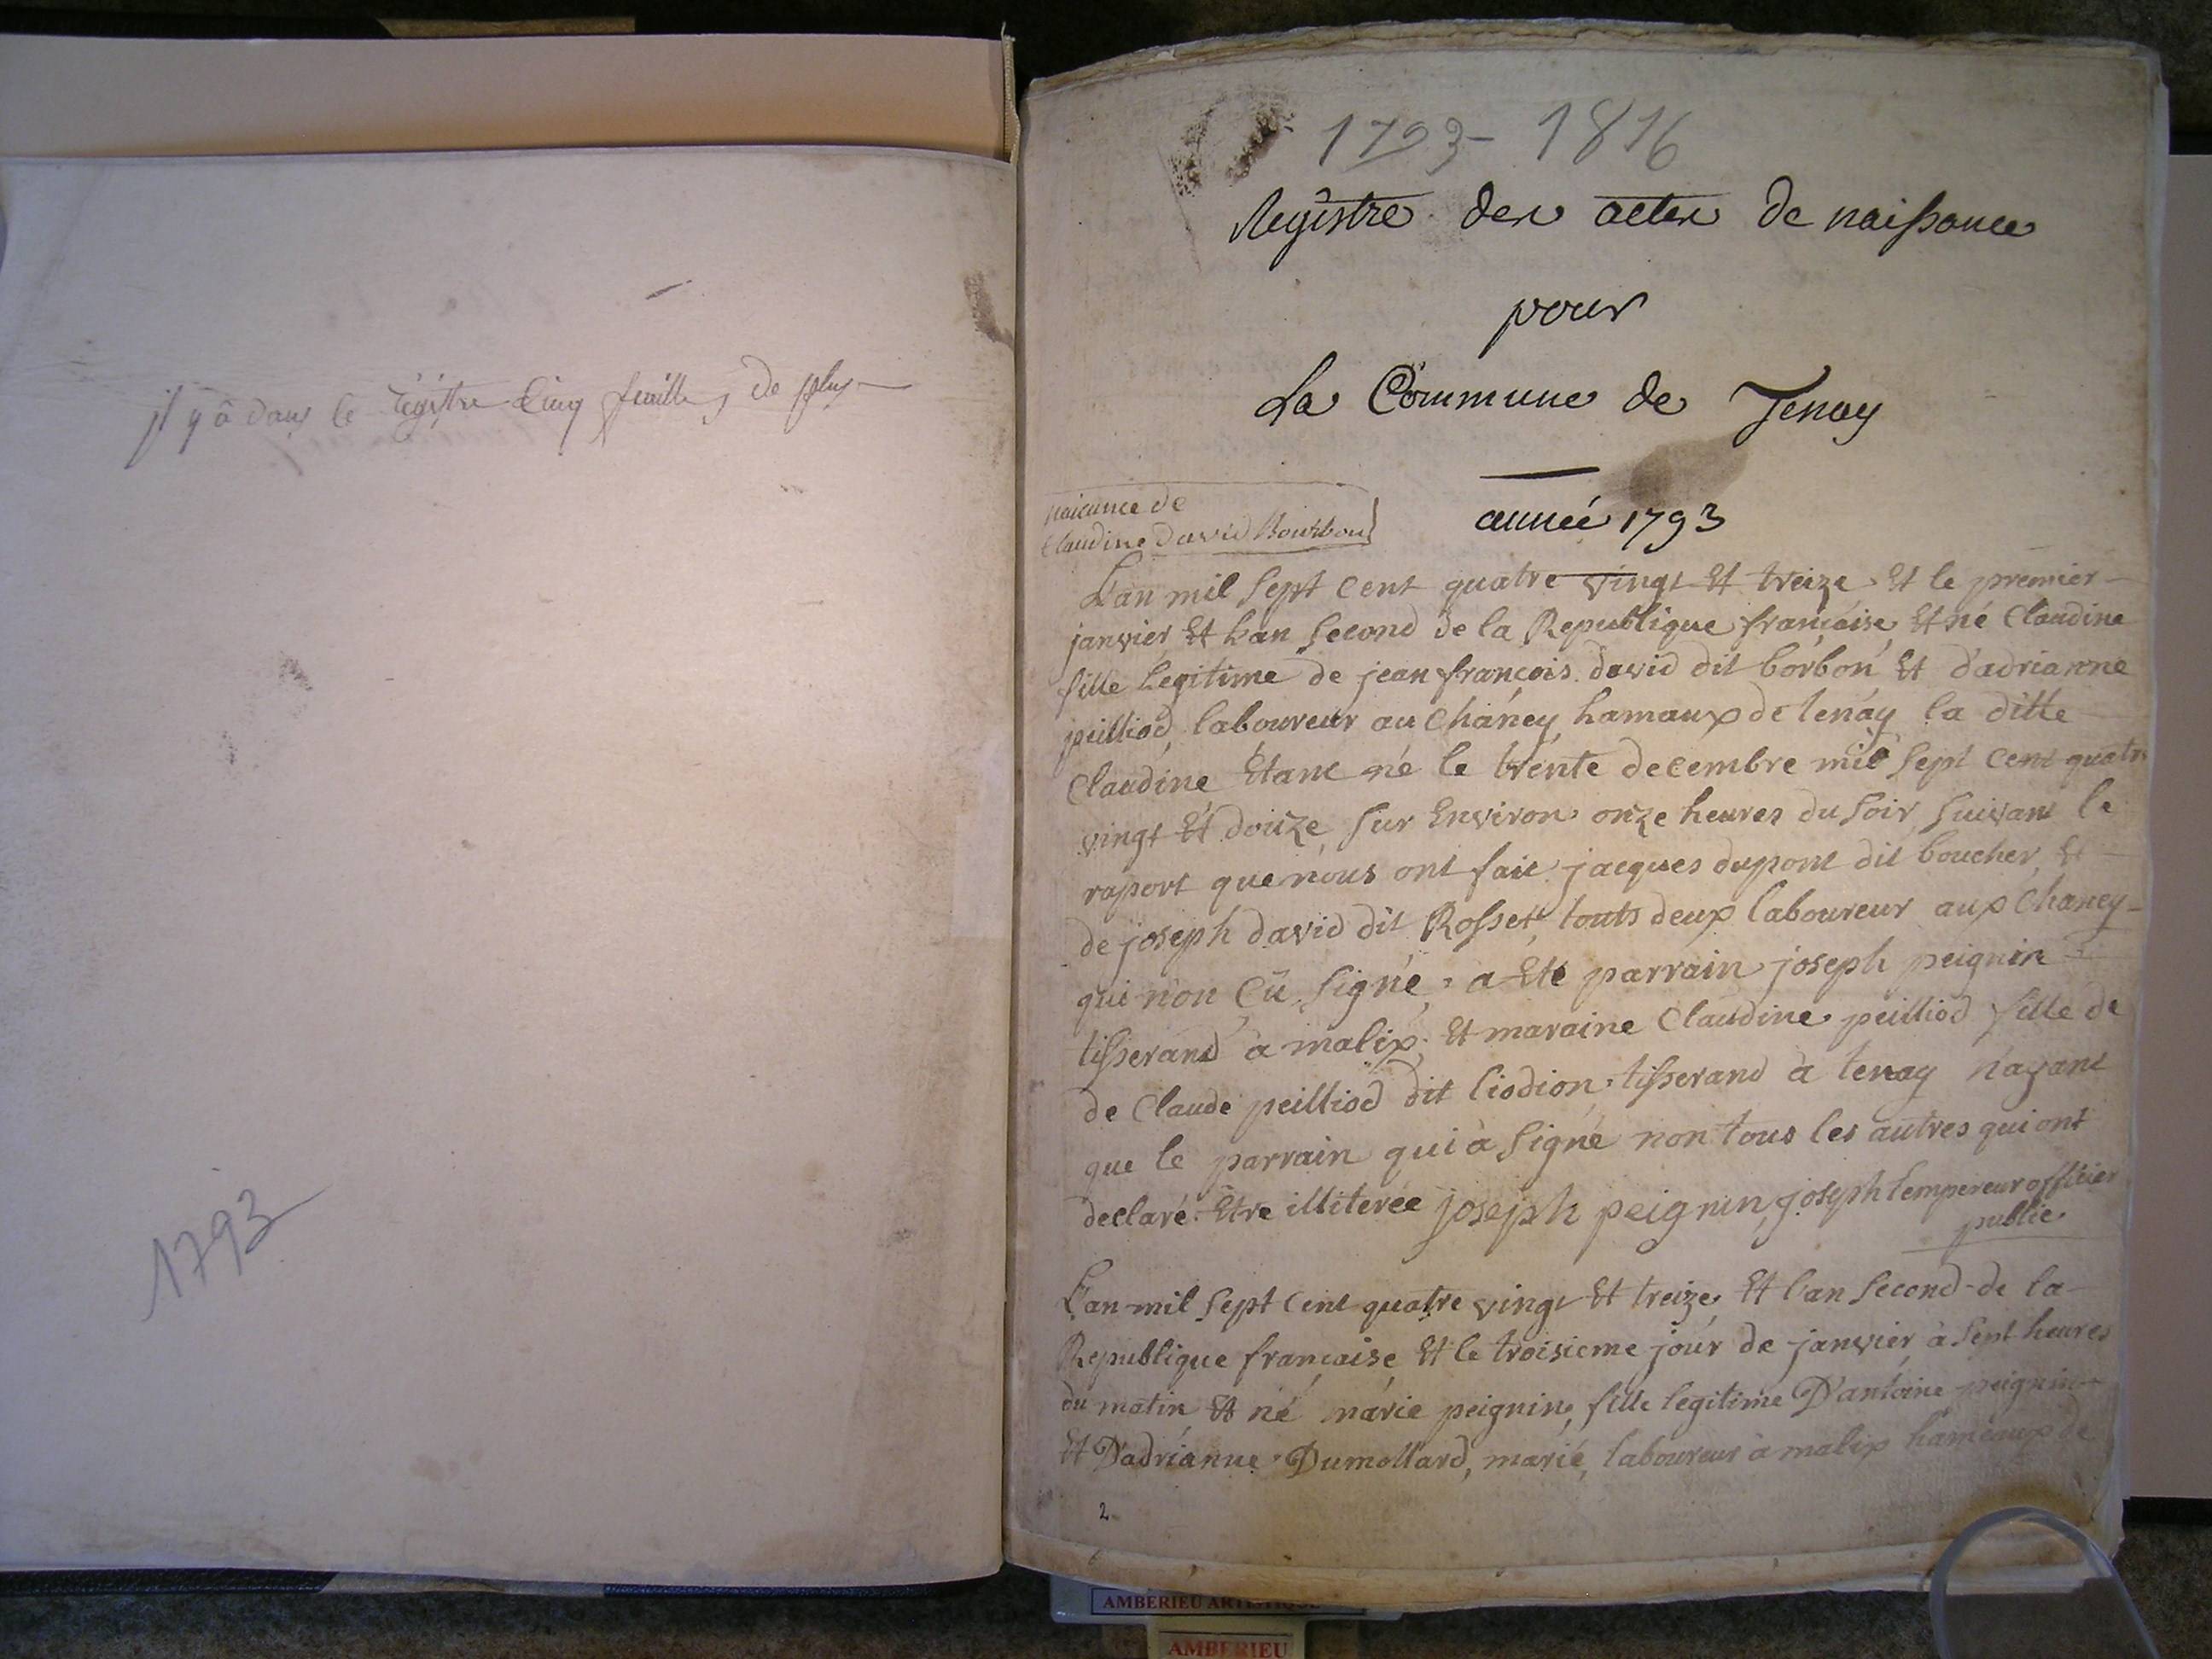 il y a dans le régistre Cinq feuilles de plus
1793
1793 - 1816
Registre des actes de naissance
pour
La Commune de Tenay
année 1793
naicance de
Claudine David Bourbon
L'an mil sept cent quatre vingt Et treize Et le premier
janvier Et l'an second de la Republique française Et né Claudine
fille legitime de jean françois david dit borbon Et d'adrianne
peilliod, laboureur au Chaney, hamaux de tenay la ditte
Claudine Etant né le trente decembre mil sept cent quatre
vingt Et douze, sur Environ onze heures du soir, suivant le
raport que nous ont fait jacques dupont dit boucher, Et
de joseph david dit Rosset, touts deux laboureur aux Chaney
qui n'on Çû signé, a Eté parrain joseph peignin
tisserand à malix, Et maraine Claudine peilliod fille de
de Claude peilliod dit liodion, tisserand à tenay n'ayant
que le parrain qui à signé non tous les autres qui ont
declaré Etre illiterée joseph peignin, joseph lempereur officier
public
L'an mil sept cent quatre vingt Et treize, Et l'an second de la
Republique française, Et le troisieme jour de janvier, à sept heures
du matin Et né marie peignin, fille legitime D'antoine peignin
Et D'adrianne Dumollard, marié, laboureur à malix hameaux de
2
AMBERIEU ARTISTIQUE
AMBERIEU